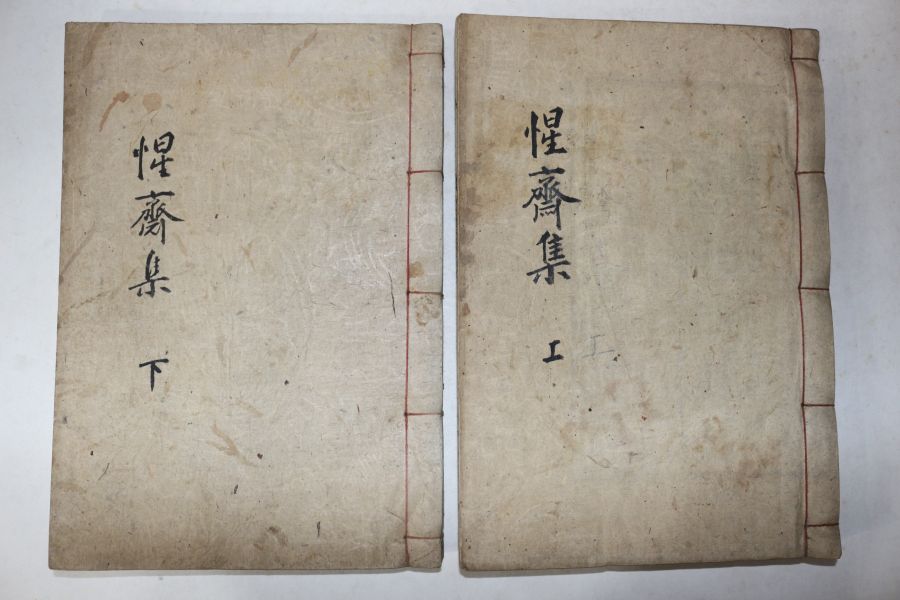 惺齋集
上
惺齋集
下